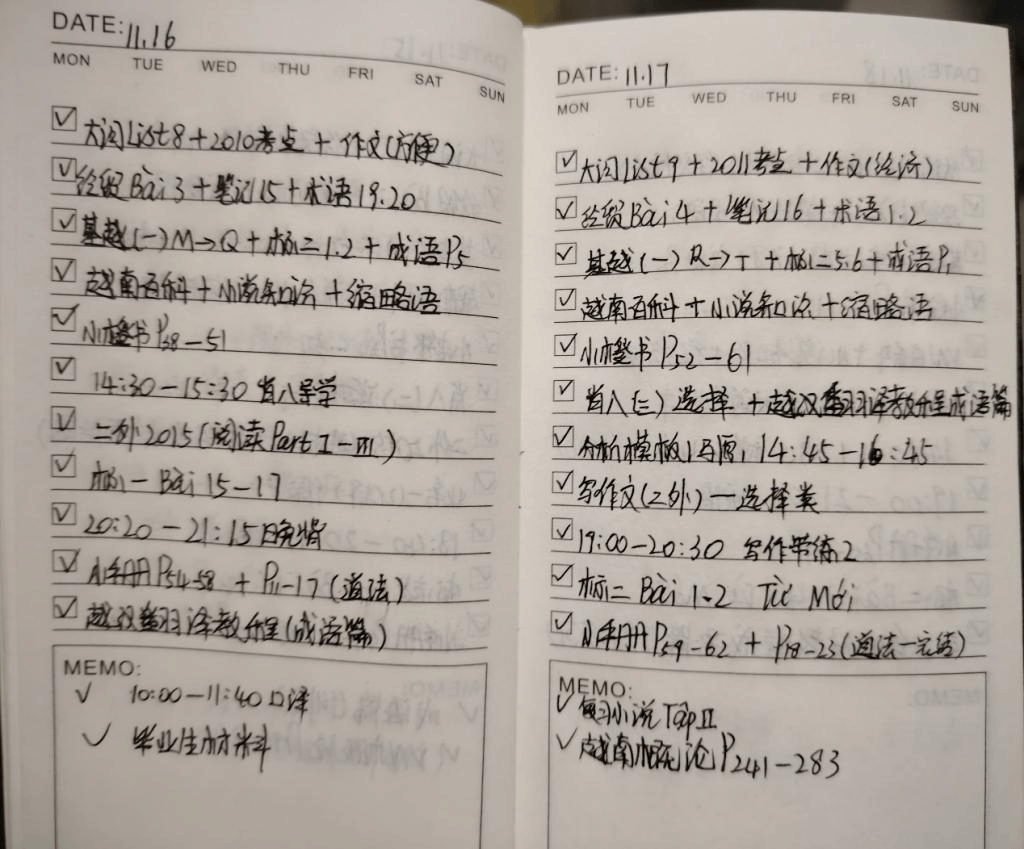 DATE: 11.16
MON TUE WED THU FRI SAT SUN
大词List8+2010考点+作文(方便)
经贸Bài3+笔记15+术语19.20
基越(一)M→Q+标二1.2+成语P5
越南百科+小说知识+缩略语
小橙书P38-51
14:30-15:30 肖八导学
二外2015(阅读Part I-III)
标一 Bài 15-17
20:20-21:15 晚
小手册P54-58+P11-17(道法)
越汉翻译教程(成语篇)
MEMO:
10:00-11:40口译
毕业生材料
DATE: 11.17
MON TUE WED THU FRI SAT SUN
大词List9+2011考点+作文(经济)
经贸Bài4+笔记16+术语1.2
基越(一)R→T+标二5.6+成语P1
越南百科+小说知识+缩略语
小橙书P52-61
肖八(三)选择+越汉翻译教程成语篇
分析模板1马原,14:45-16:45
写作文(二外)—选择类
19:00-20:30 写作带练2
标二 Bài 1.2 Từ Mới
小手册P59-62+P18-23(道法-完结)
MEMO:
复习小说Tập II
越南概论P241-283